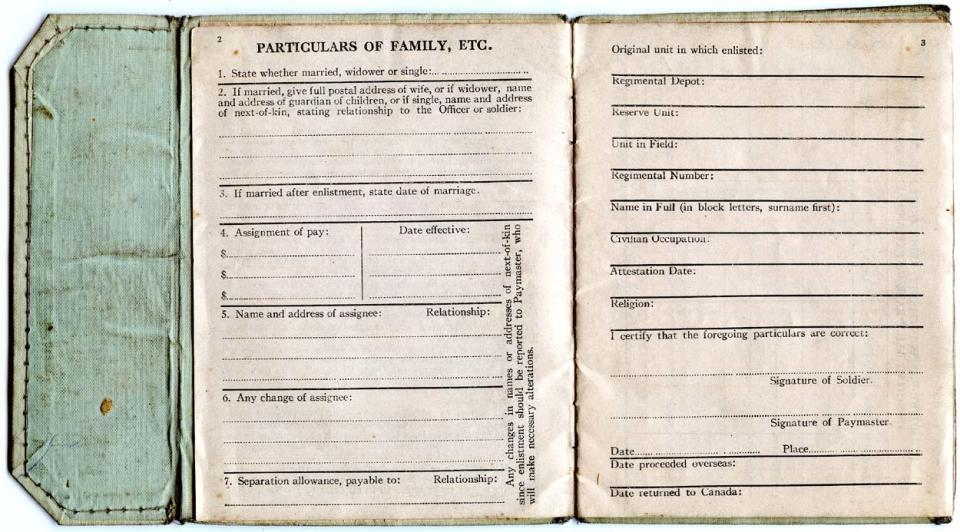 2
PARTICULARS OF FAMILY, ETC.
1. State whether married, widower or single:
2. If married, give full postal address of wife, or if widower, name
and address of guardian of children, or if single, name and address
of next-of-kin, stating relationship to the Officer or soldier:
3. If married after enlistment, state date of marriage.
4. Assignment of pay: Date effective:
$
$
$
5. Name and address of assignee: Relationship:
6. Any change of assignee:
7. Separation allowance, payable to: Relationship:
Any changes in names or addresses of next-of-kin
since enlistment should be reported to Paymaster, who
will make necessary alterations.
3
Original unit in which enlisted:
Regimental Depot:
Reserve Unit:
Unit in Field:
Regimental Number:
Name in Full (in block letters, surname first):
Civilian Occupation:
Attestation Date:
Religion:
I certify that the foregoing particulars are correct:
Signature of Soldier.
Signature of Paymaster.
Date Place
Date proceeded overseas:
Date returned to Canada: